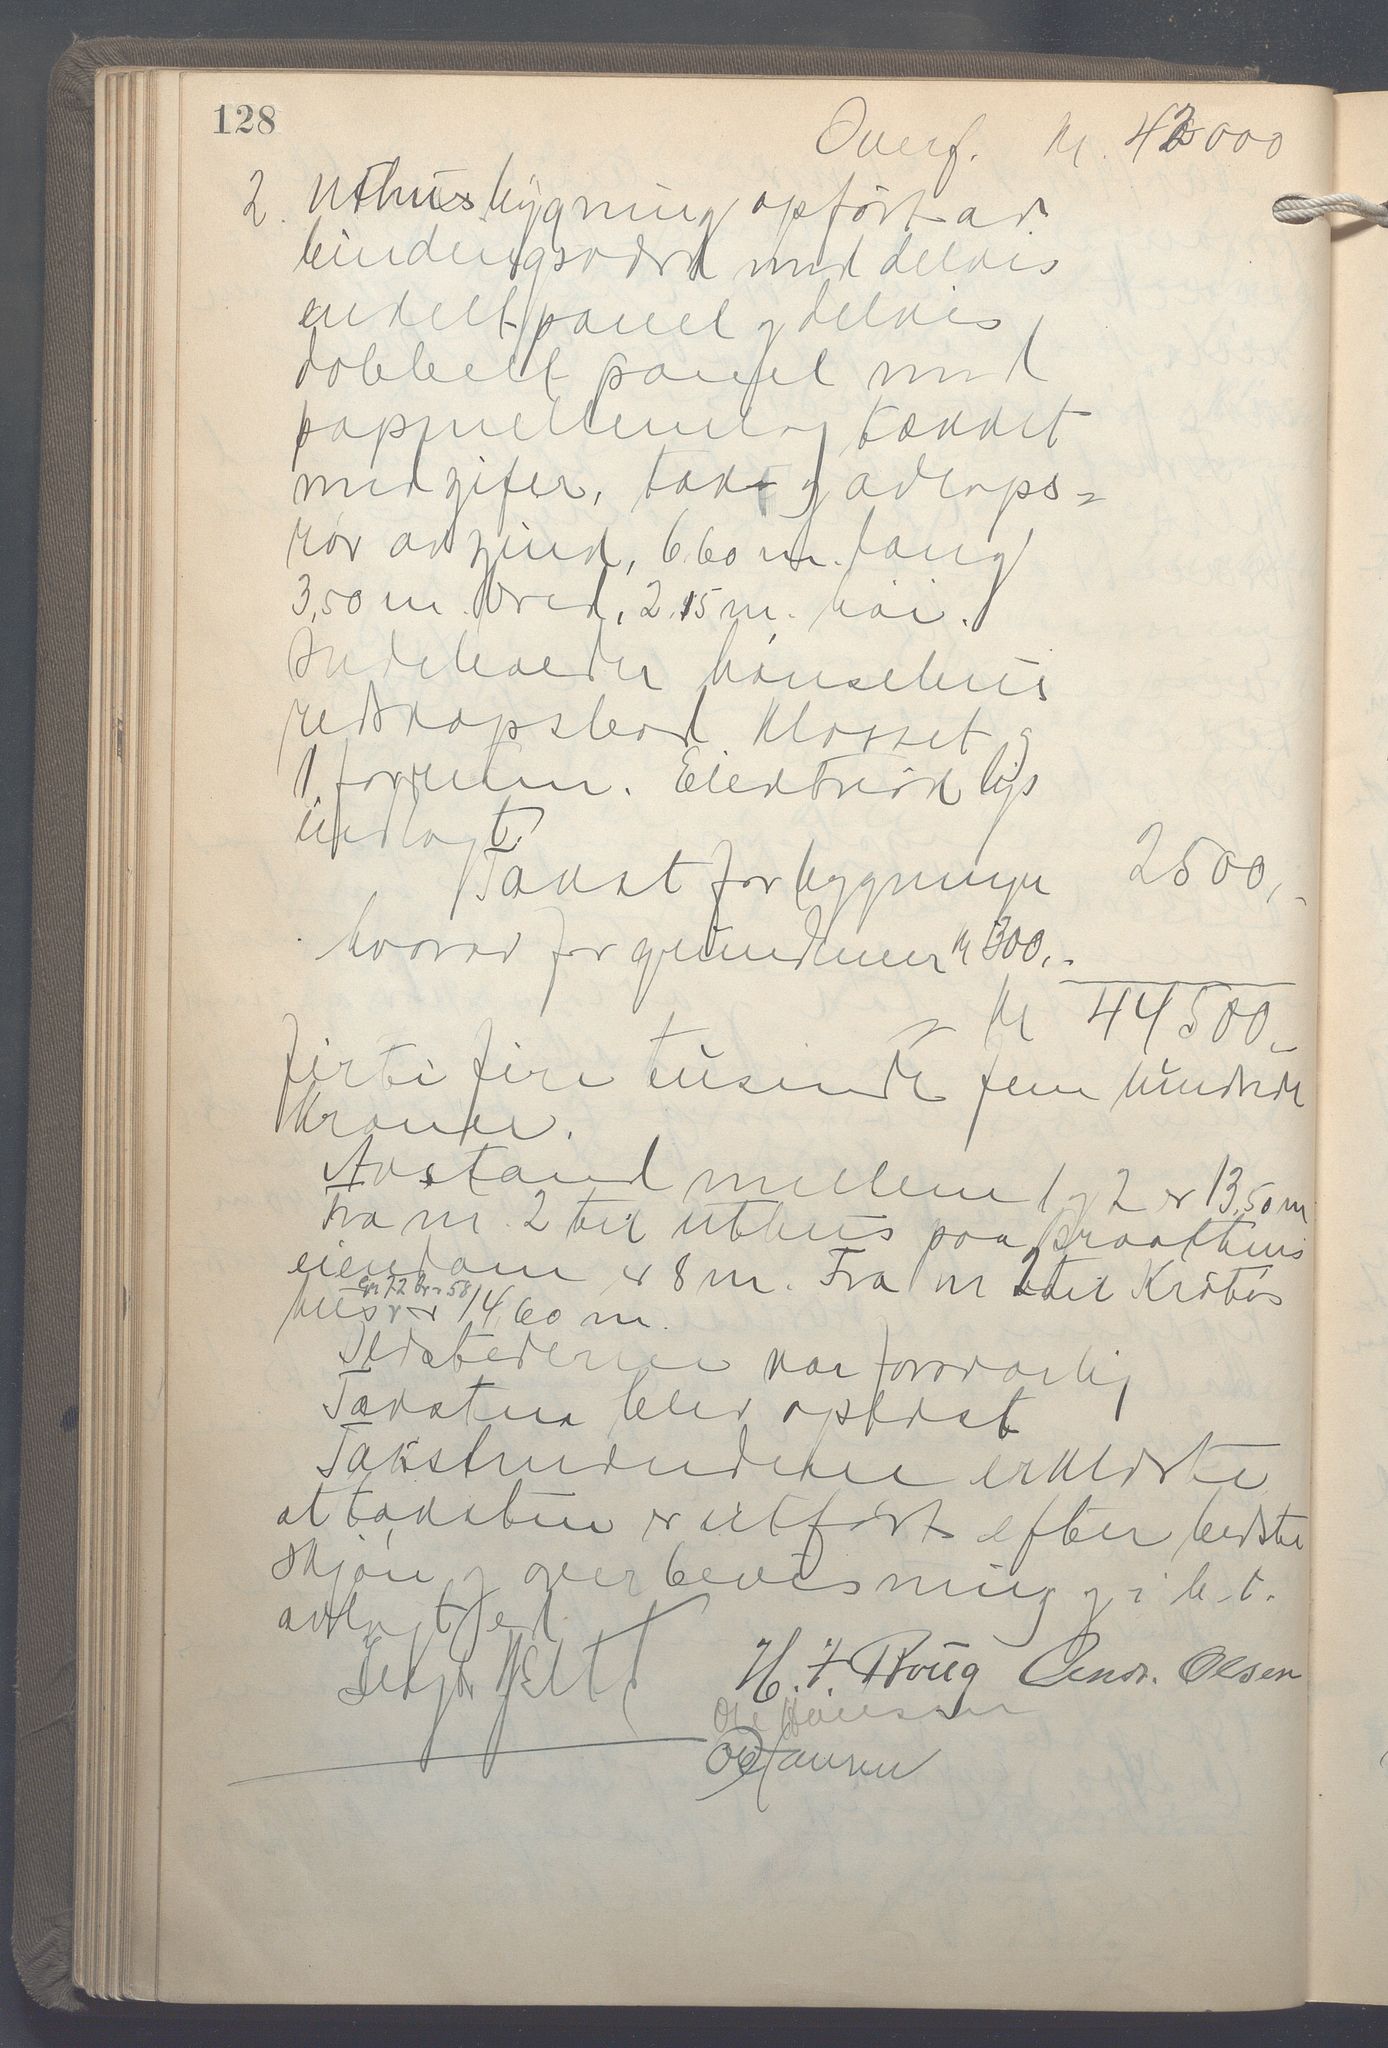 128
Overf. Kr. 42000
2. Uthusbygning opført av
bindingsverk med delvis
enkelt panel og delvis
dobbelt panel med
papmellemlag tækket
med skifer, tak- og avløps-
rør av zink, 6.60 m. lang
3,50 m. bred, 2.15 m. høi.
Indeholder hønsehus
redskapsbod klosset og
1 forrum. Elektrisk lys
indlagt.
Takst for bygningen 2500,-
hvorav for grundmur kr 300,-
Kr 44500,-
firti fire tusinde fem hundrede
kroner.
Avstand mellem 1 og 2 er 13,50 m
Fra nr. 2 til uthus paa Braathens
eiendom er 8 m. Fra nr 2 til
gr 72 br. 58
hus er 14,60 m.
Ildstederne var forsvarlig
Taksten blev oplæst
Takstmændene erklærte
at taksten er utført efter bedste
skjøn og overbevisning og i h.t.
avlagt ed.
H. F. Roug Olsen
Ole Hansen
O Hansen